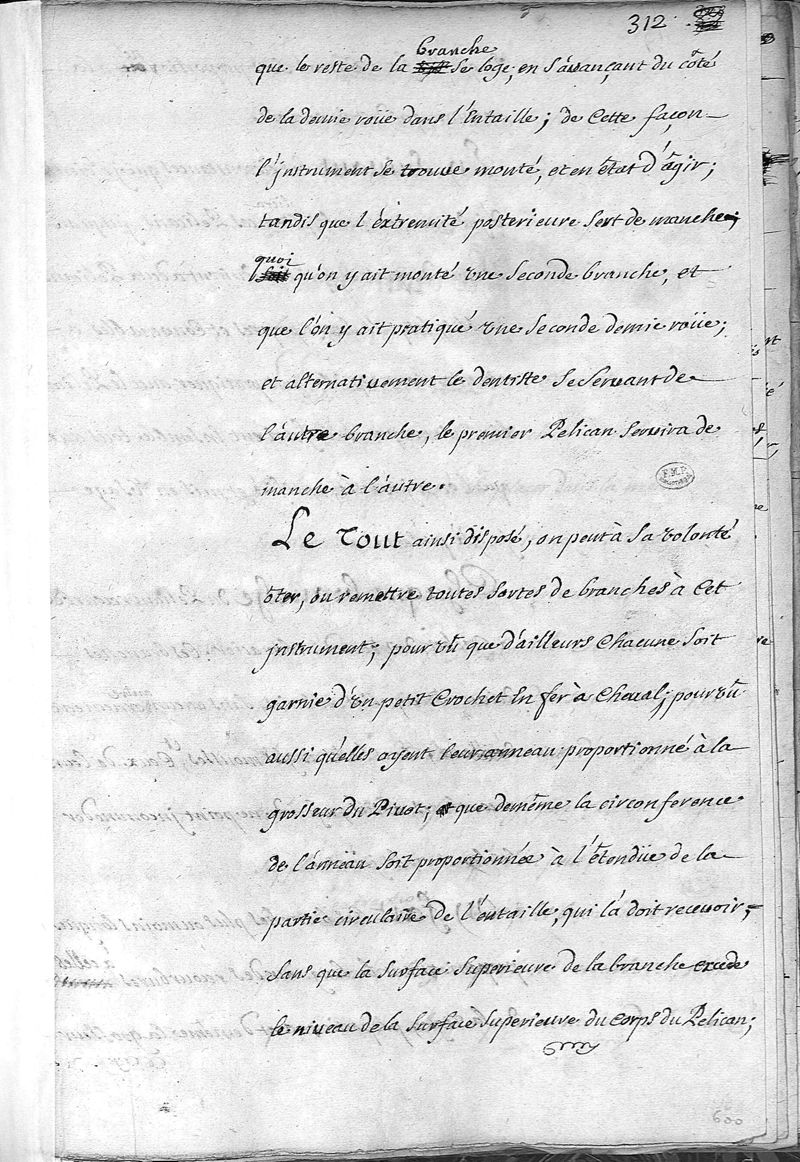 312.
branche
que le reste de la se loge, en s'auançant du côté
de la demie roüe dans l'Entaille; de Cette façon
l'instrument se trouue monté, et en êtat d'agir;
tandis que l'éxtremité posterieure sert de manche;
quoi
qu'on y ait monté une seconde branche, et
que l'on y ait pratiqué une seconde demie roüe;
et alternativement le dentiste se seruant de
l'autre branche, le premier Pelican seruira de
manche à l'autre.
Le Tout ainsi disposé, on peut à sa volonté
ôter, ou remettre toutes sortes de branches à Cet
jnstrument; pour vû que d'ailleurs Chacune soit
garnie d'un petit Crochet En fer à Cheual; pour vû
aussi qu'elles ayent leur anneau proportionné à la
grosseur du Pivot; et que demême la circonference
de l'anneau soit proportionnée à l'êtendüe de la
partie circulaire de l'entaille, qui là doit receuoir,
sans que la surface superieure de la branche excede
le niveau de la surface superieure du corps du Pelican;
600